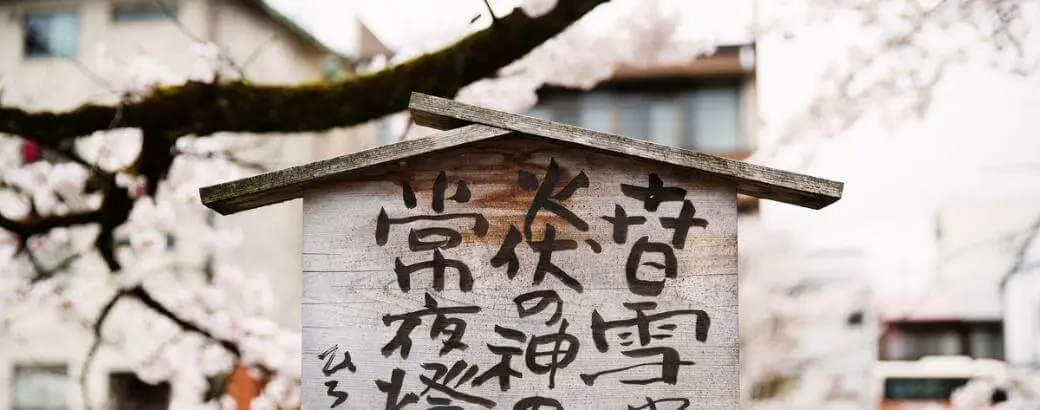 昔雪
火伏の神の
常夜燈
ひろ